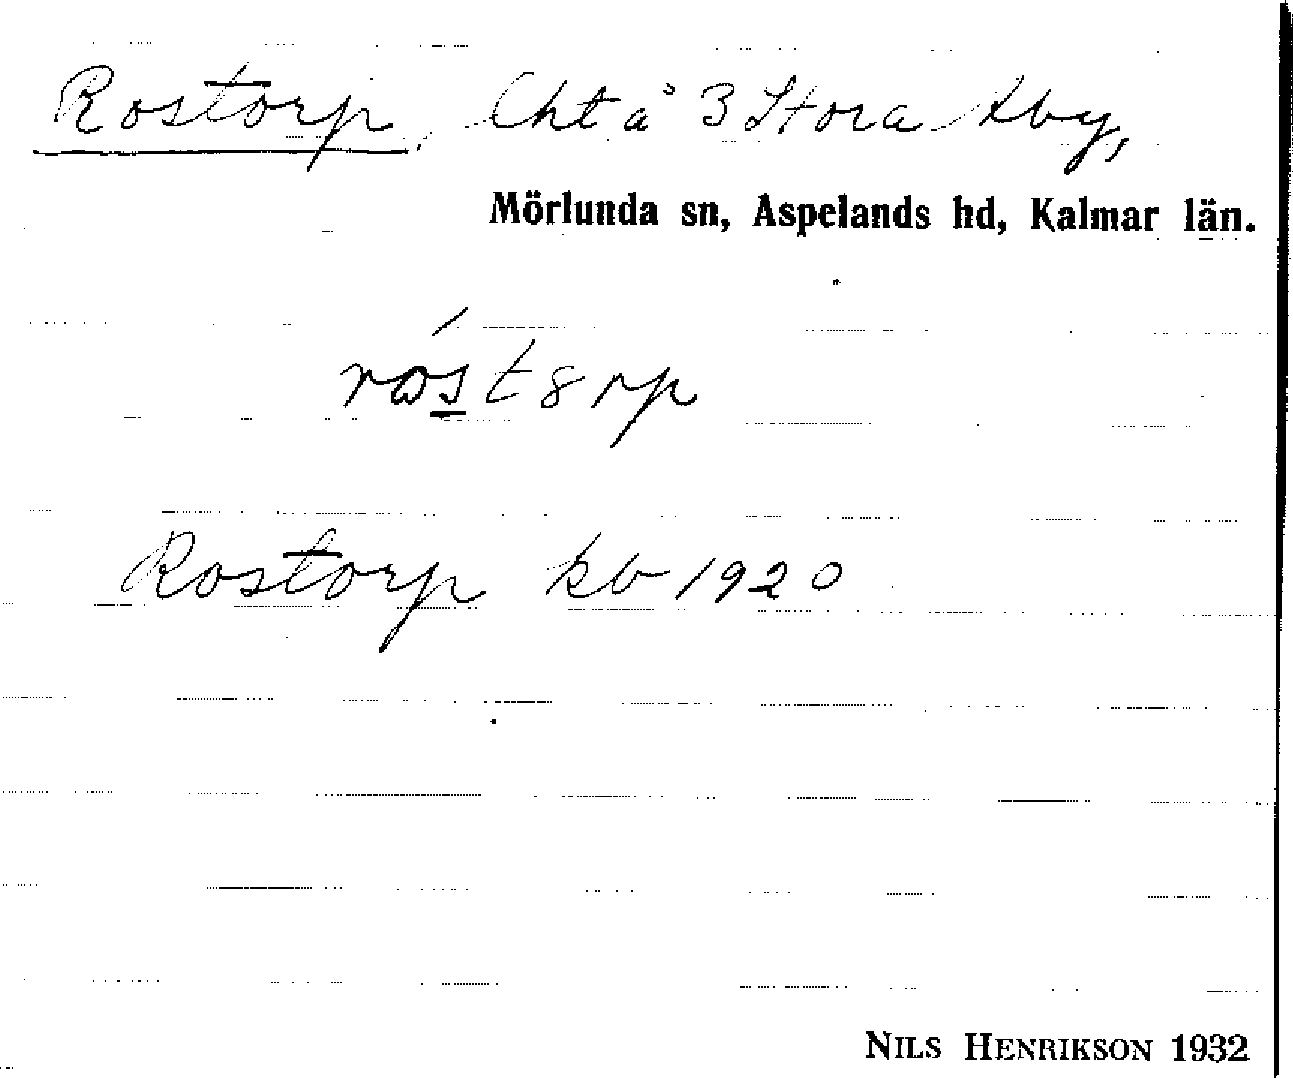 Rostorp, lht å 3 Stora Åby,
Mörlunda sn, Aspelands hd, Kalmar län.
Rostorp kb 1920
NILS HENRIKSON 1932